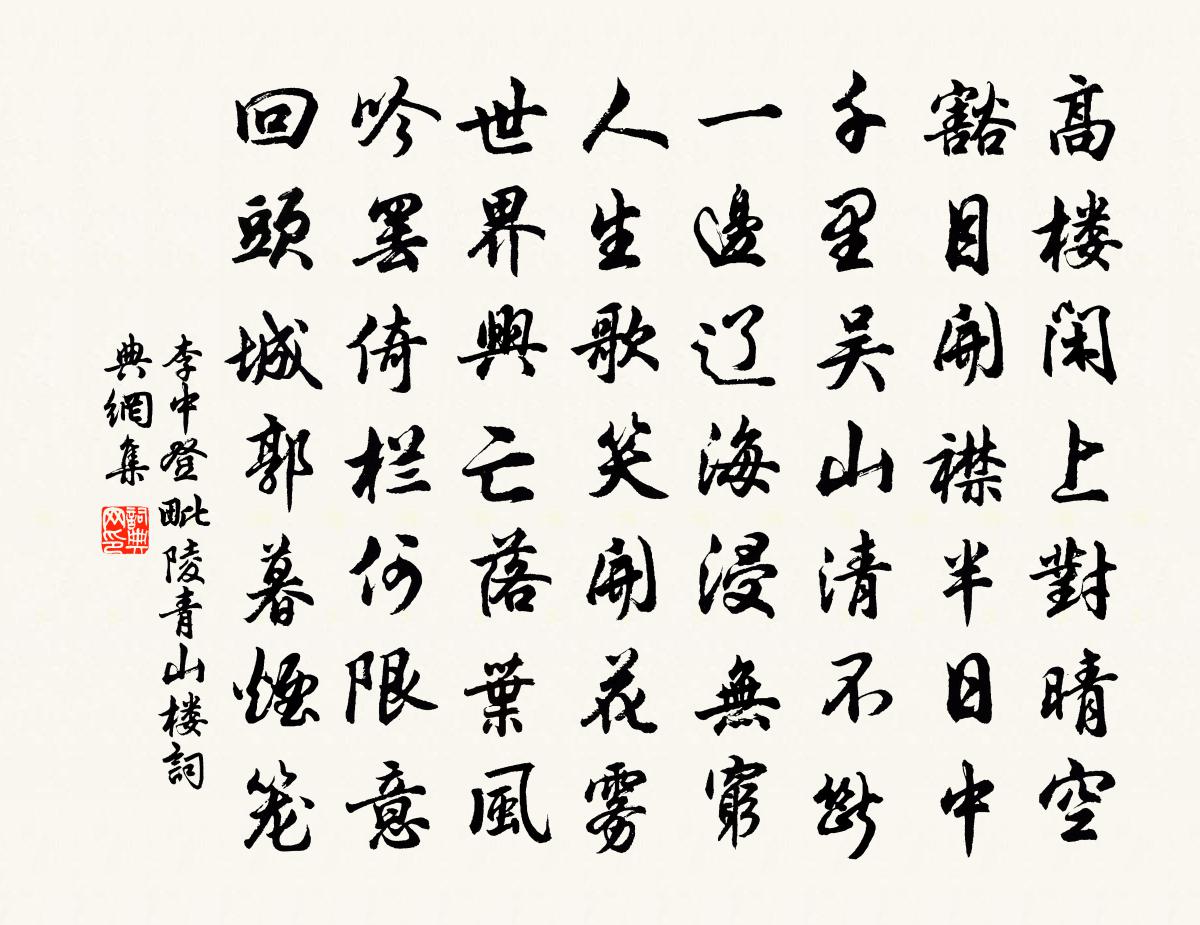 高楼闲上對晴空
豁目開襟半日中
千里吴山清不斷
一邊辽海浸無窮
人生歌笑開花雾
世界興亡落葉風
吟罢倚栏何限意
回頭城郭暮煙笼
李中登毗陵青山楼詞
典網集
詞典网印